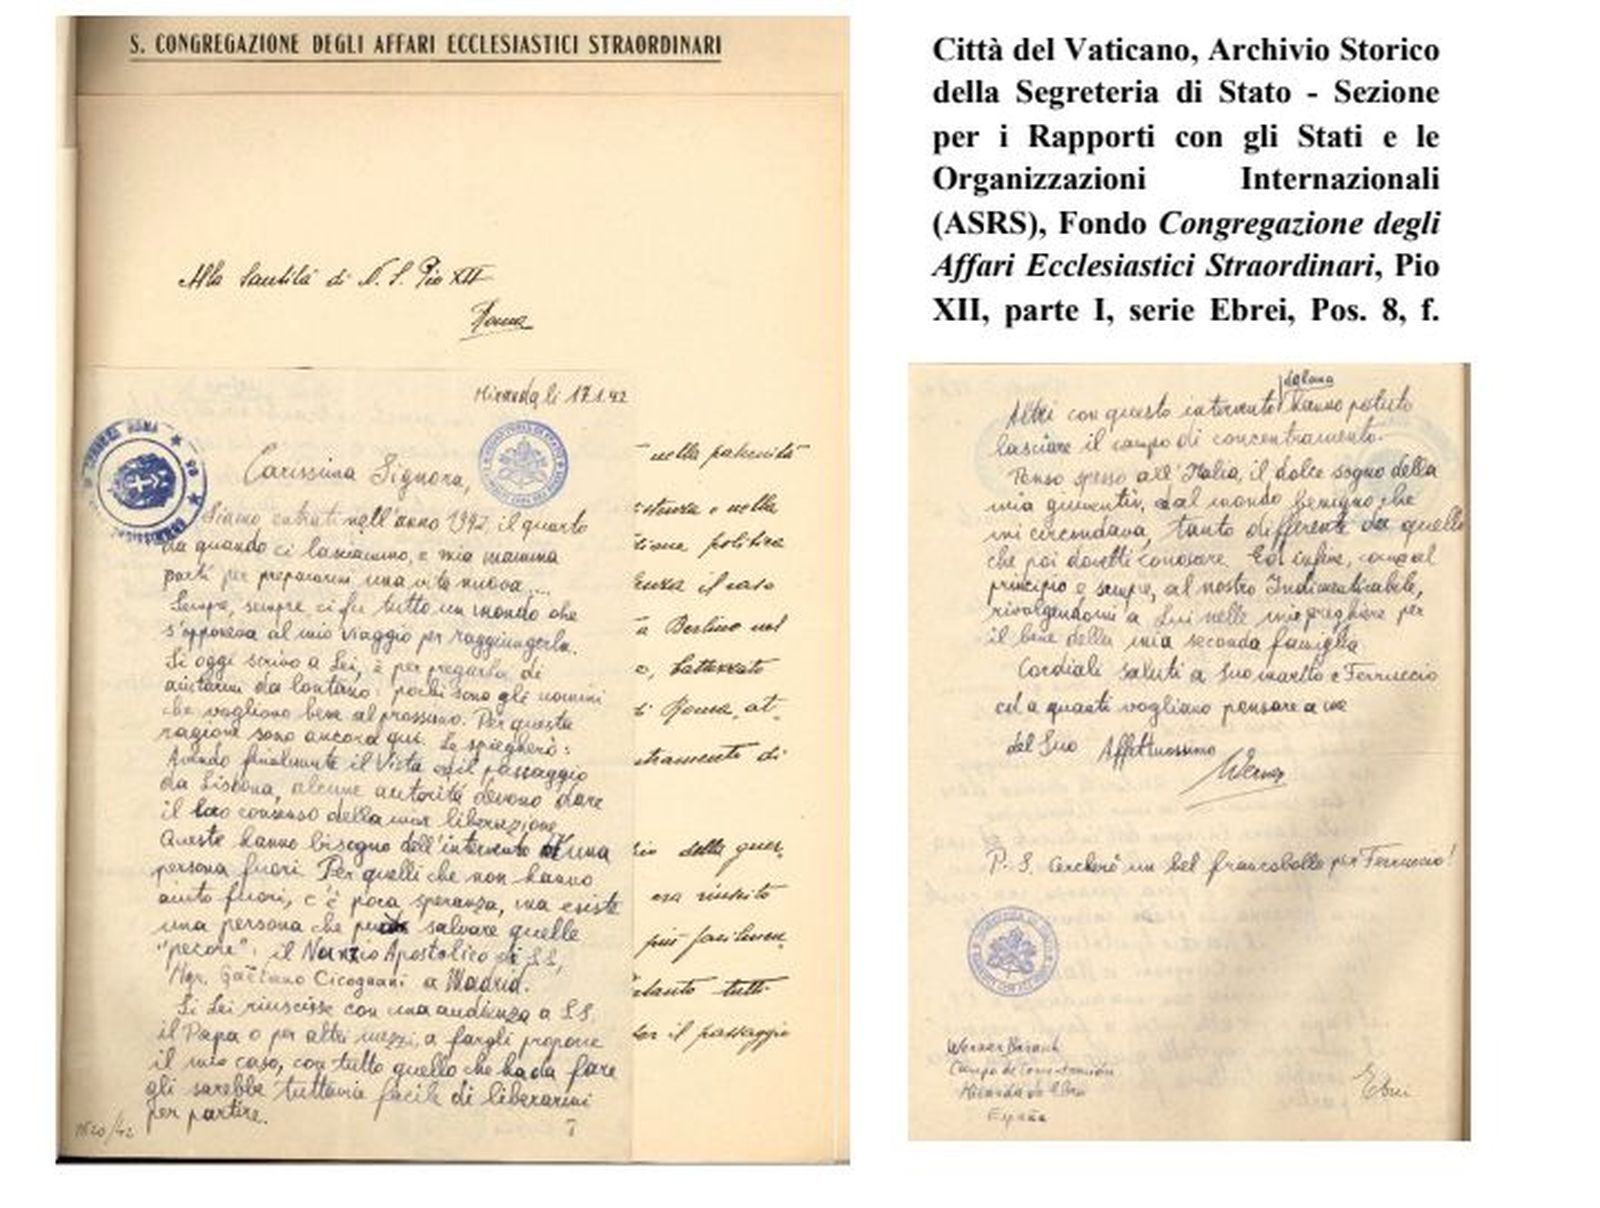 S. CONGREGAZIONE DEGLI AFFARI ECCLESIASTICI STRAORDINARI
Alla Santità di N. S. Pio XII
Roma
Miranda, li 17.1.42
Carissima Signora,
Siamo entrati nell'anno 1942, il quarto
da quando ci lasciammo, e mia mamma
partì per prepararmi una vita nuova....
Sempre, sempre ci fu tutto un mondo che
s'opponeva al mio viaggio per raggiungerla.
Se oggi scrivo a Lei, è per pregarla di
aiutarmi da lontano: pochi sono gli uomini
che vogliono bene al prossimo. Per questa
ragione sono ancora qui. Le spiegherò:
Avendo finalmente il Vista ed il passaggio
da Lisbona, alcune autorità devono dare
il loro consenso della mia liberazione.
Queste hanno bisogno dell'intervento d'una
persona fuori. Per quelli che non hanno
aiuto fuori, c'è poca speranza, ma esiste
una persona che salvare quelle
"pecore": il Nunzio Apostolico di S.S.,
Mgr. Gaetano Cicognani a Madrid.
Se Lei riuscisse con una audienza a S.S.
il Papa o per altri mezzi, a fargli proporre
il mio caso, con tutto quello che ha da fare
gli sarebbe tuttavia facile di liberarmi
per partire.
nella paternità
e nella
politica
il caso
a Berlino nel
o, battezzato
di Roma, at-
della guer-
era riuscito
più facilmen-
tutto
il passaggio
7
Città del Vaticano, Archivio Storico
della Segreteria di Stato - Sezione
per i Rapporti con gli Stati e le
Organizzazioni Internazionali
(ASRS), Fondo Congregazione degli
Affari Ecclesiastici Straordinari, Pio
XII, parte I, serie Ebrei, Pos. 8, f.
Altri con questo intervento hanno potuto
lasciare il campo di concentramento.
Penso spesso all'Italia, il dolce sogno della
mia gioventù, dal mondo benigno che
mi circondava, tanto differente da quello
che poi dovetti conoscere. Ed infine, come al
principio e sempre, al nostro Indimenticabile,
rivolgendomi a Lui nelle mie preghiere per
il bene della mia seconda famiglia
Cordiali saluti a Suo marito e Ferruccio
ed a quanti vogliano pensare a me
del Suo Affettuosissimo
Werner
P.S. Cercherò un bel francobollo per Ferruccio!
Werner Barasch
Campo de Concentración
Miranda de Ebro
España
Ebrei